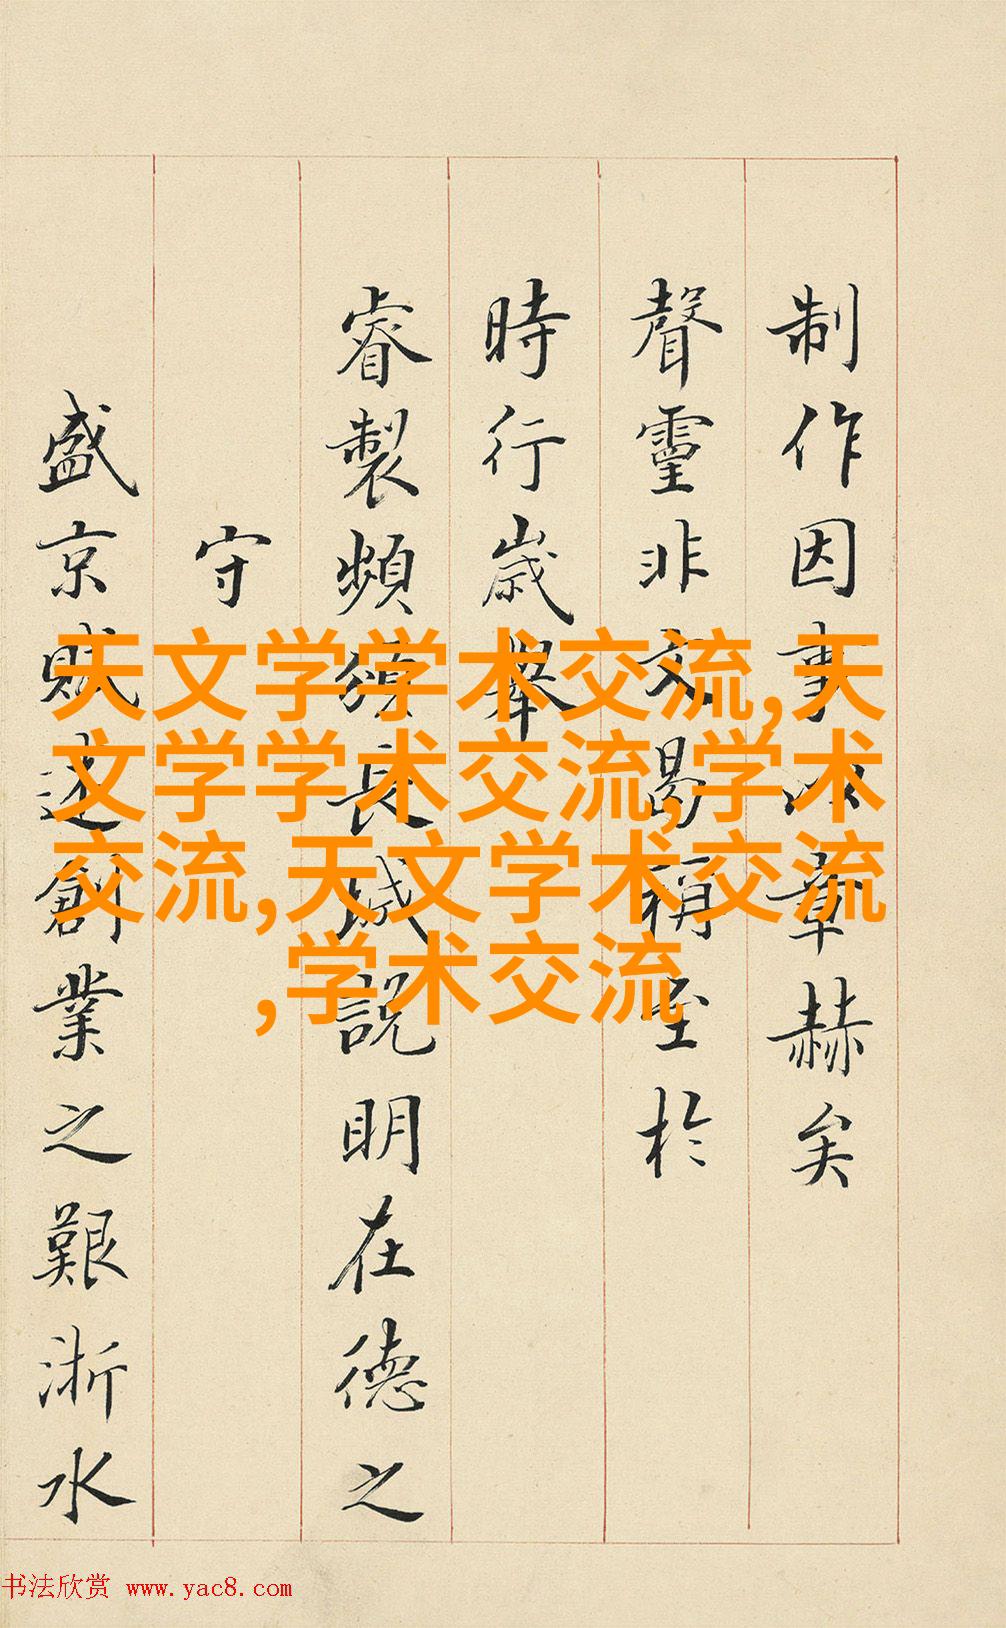 制作因事以章赫矣
聲靈非文曷稱至於
時行歲舉
睿製頻頒長城說明在德之
守
盛京賦述創業之艱浙水
天文学学术交流,天
文学学术交流,学术
交流,天文学术交流
,学术交流
书法欣赏 www.yac8.com